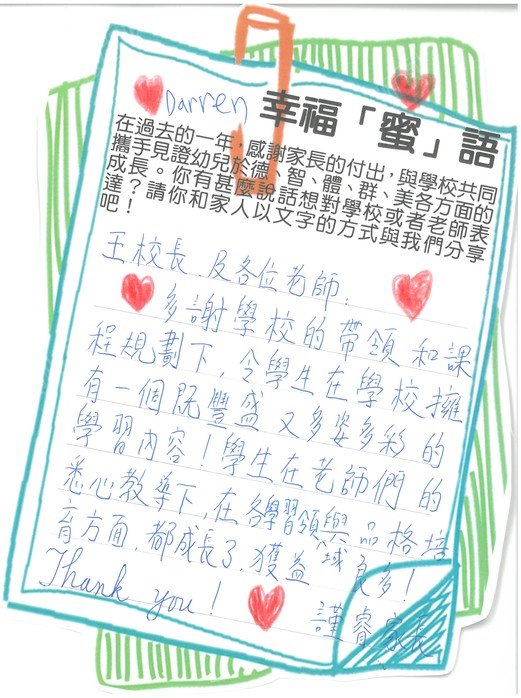 Darren 幸福「蜜」語
在過去的一年，感謝家長的付出，與學校共同
攜手見證幼兒於德、智、體、群、美各方面的
成長。你有甚麼說話想對學校或者老師表
達？請你和家人以文字的方式與我們分享
吧！
王校長及各位老師，
多謝學校的帶領和課
程規劃下，令學生在學校擁
有一個既豐盛又多姿多彩的
學習內容！學生在老師們的
悉心教導下，在各學習領域與品格培
育方面，都成長了，獲益良多！
Thank you!
謹睿家長